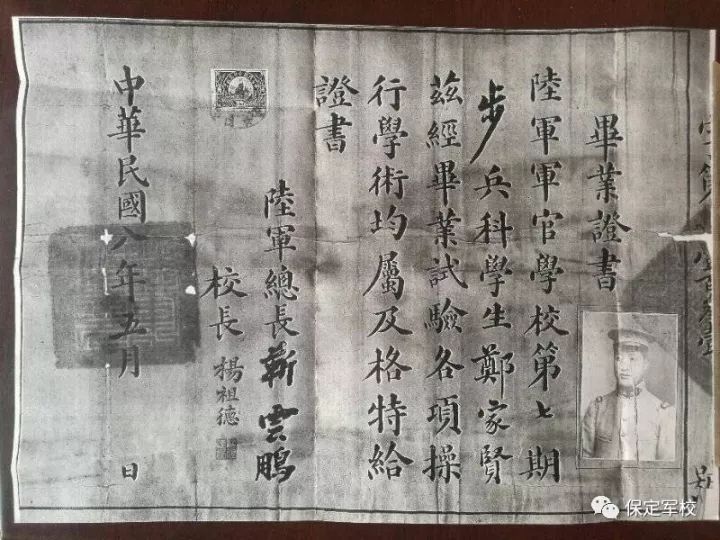 畢業證書
陸軍軍官學校第七期
步兵科學生鄭家賢
茲經畢業試驗各項操
行學術均屬及格特給
證書
陸軍總長靳雲鵬
校長楊祖德
中華民國八年五月 日
保定军校